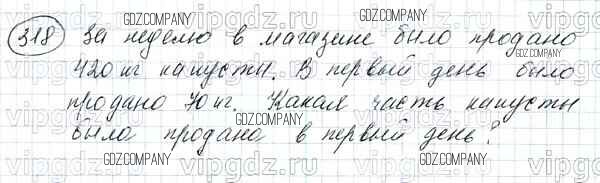 318 За неделю в магазине было продано
420 кг капусты. В первый день было
продано 70 кг. Какая часть капусты
была продана в первый день?
GDZ.COMPANY
GDZ.COMPANY
GDZ.COMPANY
GDZ.COMPANY
GDZ.COMPANY
GDZ.COMPANY
GDZ.COMPANY
vipgdz.ru
vipgdz.ru
vipgdz.ru
vipgdz.ru